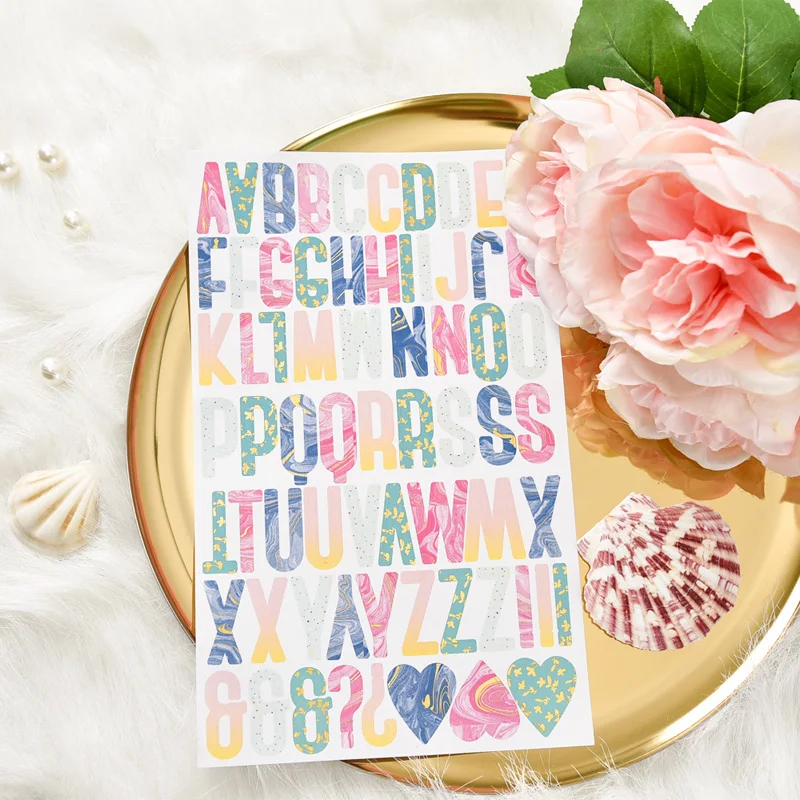 AABBCCDDE
FFGGHHIIJJK
KLLMWNNOO
PPQQRRSSSS
TTUUVVWMX
XXYYYZZZ!!!
&&&?¿